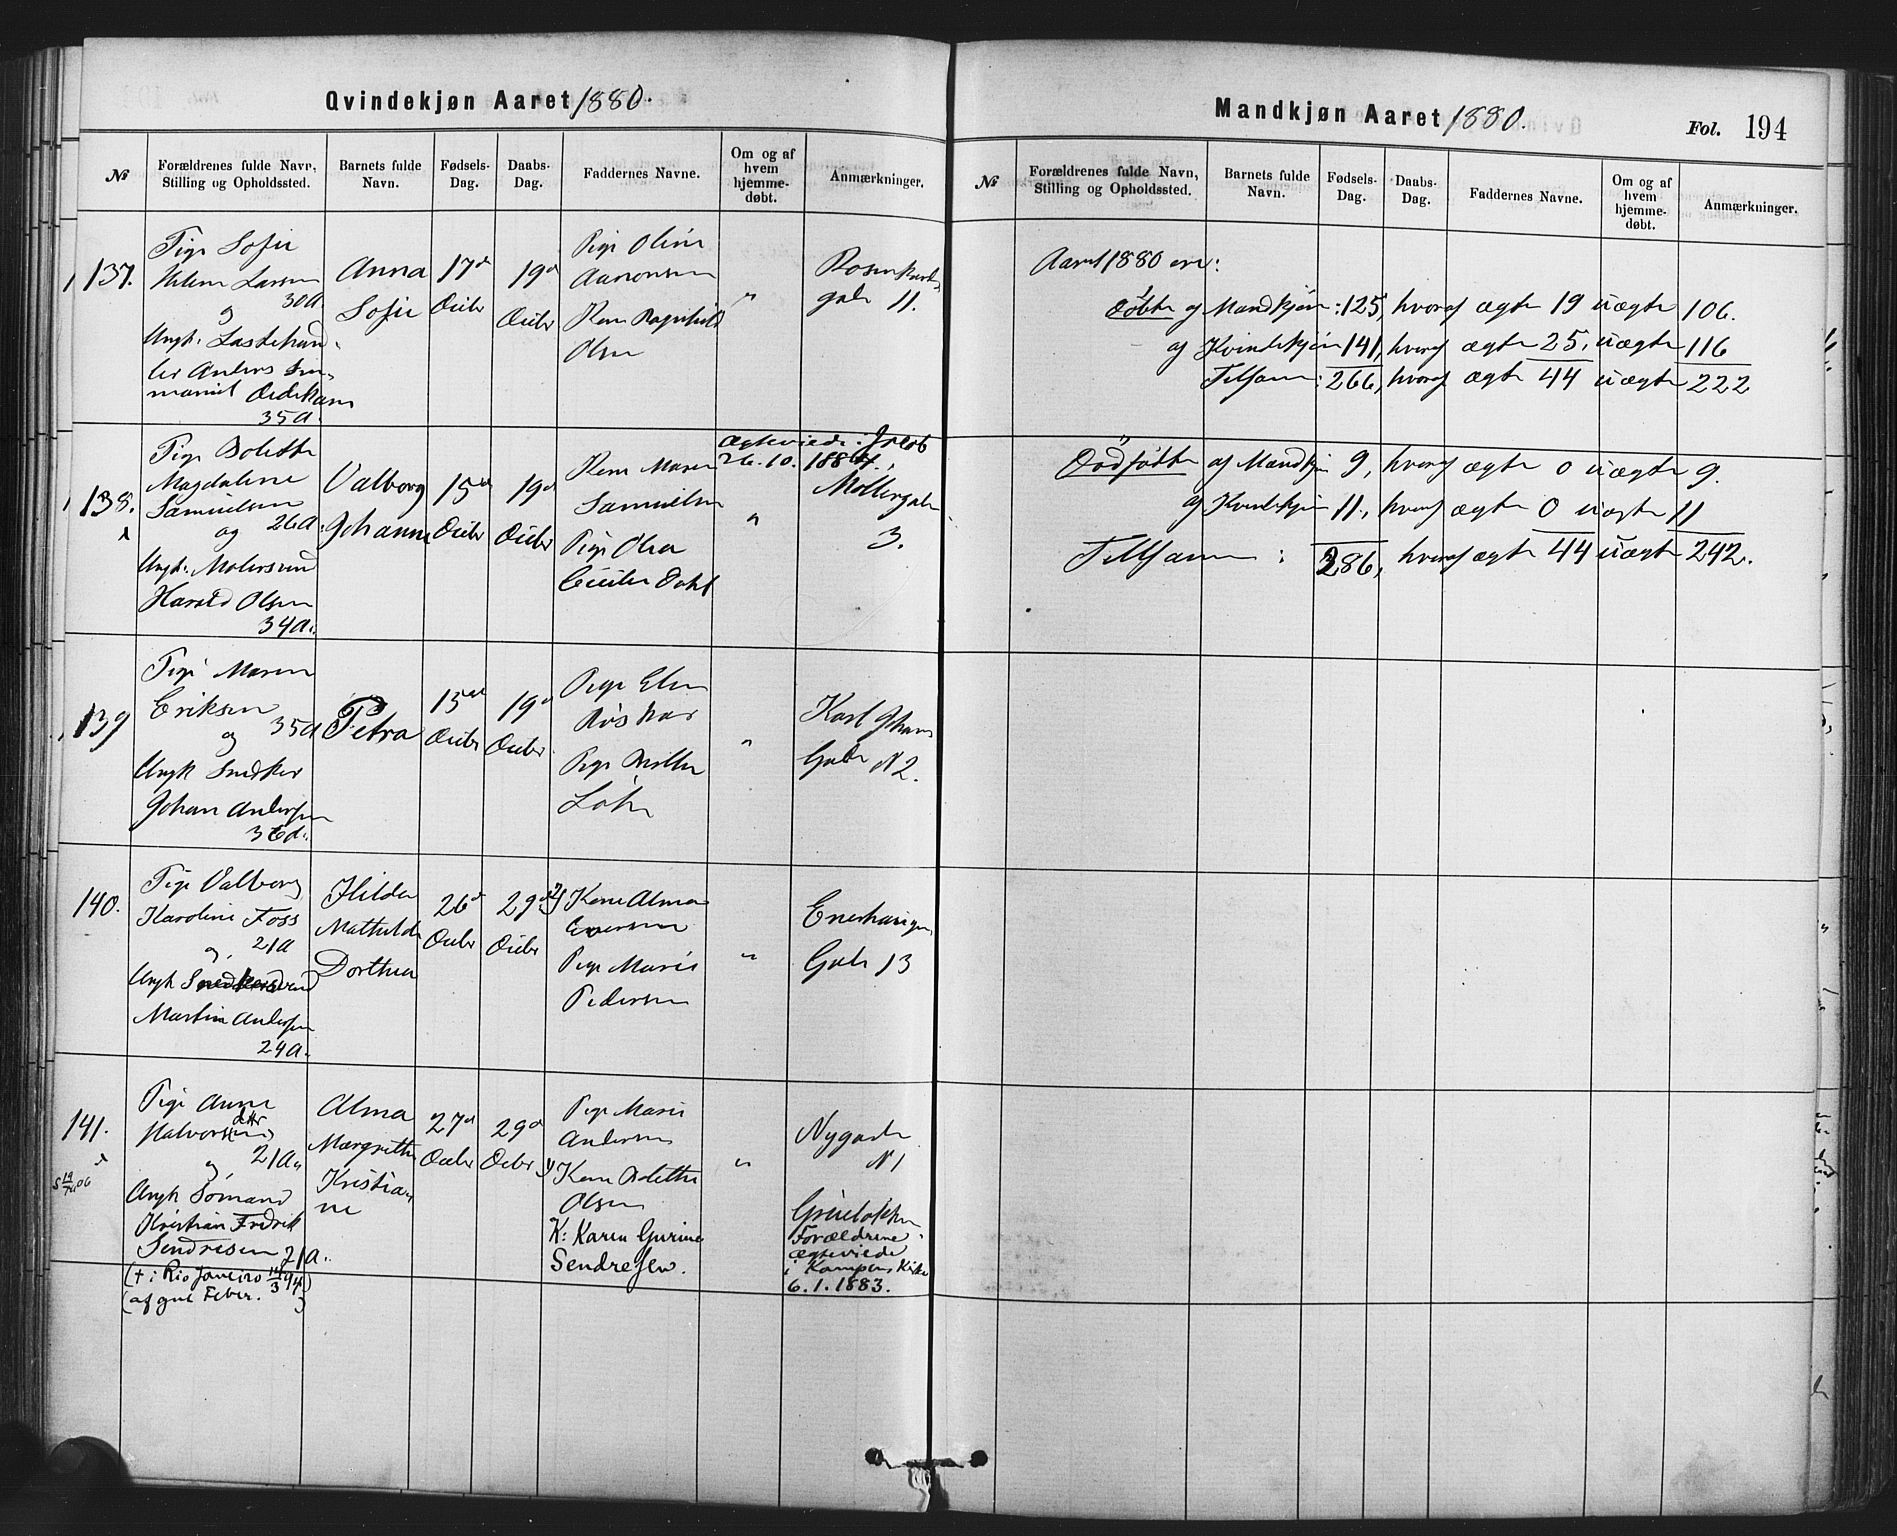 Qvindekjøn Aaret 1880.
№
Forældrenes fulde Navn, Stilling og Opholdssted.
Barnets fulde Navn.
Fødsels-Dag.
Daabs-Dag.
Faddernes Navne.
Om og af hvem hjemme-døbt.
Anmærkninger.
137.
Pige Sofie
Helene Larsen
30 A.
og
Ungk.
Anders
35 A.
Anna
Sofie
17d
19d
Pige Oline
Aaronsen
Kone Ragnhild
Olsen
"
gade 11.
138.
Pige Bolette
Magdalene
Samuelsen
og 26 A.
Ungk. Molersvend
Harald Olsen
34 A.
Valborg
Johanne
15d
19d
Kone Maren
Samuelsen
Pige Olea
Dahl
"
Ægteviede i Jacob
26.10.1884.
Møllergade
3.
139
Pige Maren
Eriksen
og 35 A
Ungk Snedker
Johan Andersen
36 A.
Petra
15de
19d
Pige
Pige
"
Karl Johans
Gade N 2.
140.
Pige Valborg
Karoline Foss
og 21 A
Ungk Snedkersvend
Martin Andersen
24 A.
Hilda
Mathilde
Dorthea
26d
29d
Kone Alma
Iversen
Pige Marie
Pedersen
"
Enerhaugen
Gade 13
141.
Pige Anne
Halvorsen dttr
og 21 A
Ungk Sømand
Kristian Fredrik
Sendresen 21 A.
(† i Rio Janeiro 14/3 94)
(af gul Feber.)
Alma
Margrethe
Kristia
ne
27d
29d
Pige Marie
Andersen
Kone Bolette
Olsen
K: Karen Gurine
Sendresen.
"
Nygade
N 1
Grünerløkken
Forældrene
ægteviede
i Kampens Kirke
6.1.1883.
Mandkjøn Aaret 1880.
Fol. 194
№
Forældrenes fulde Navn, Stilling og Opholdssted.
Barnets fulde Navn.
Fødsels-Dag.
Daabs-Dag.
Faddernes Navne.
Om og af hvem hjemme-døbt.
Anmærkninger.
Aaret 1880 ere:
Døbte af Mandkjøn: 125, hvoraf ægte 19 uægte 106.
af Kvindekjøn 141, hvoraf ægte 25, uægte 116
Tilsam: 266, hvoraf ægte 44 uægte 222
Dødfødte af Mandkjøn 9, hvoraf ægte 0 uægte 9.
af Kvindekjøn 11, hvoraf ægte 0 uægte 11
Tilsammen: 286, hvoraf ægte 44 uægte 242.